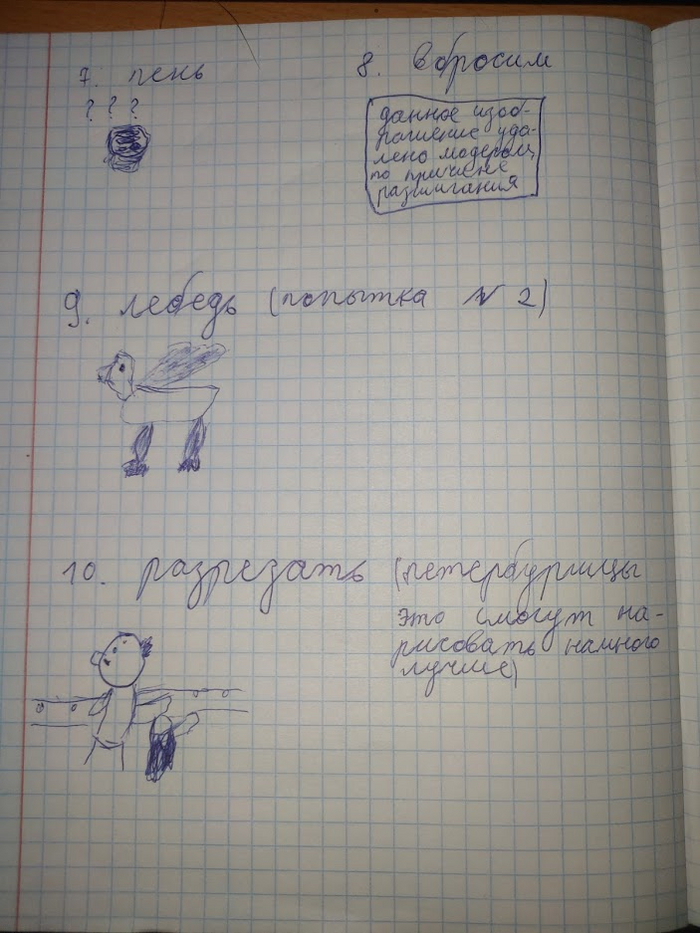 7. пень
8. вбросим
? ? ?
данное изоб-
ражение уда-
лено модерои
по причене
разжигания
9. лебедь (попытка № 2)
10. разрезать (петербуржцы
это смогут на-
рисовать намного
лучше)